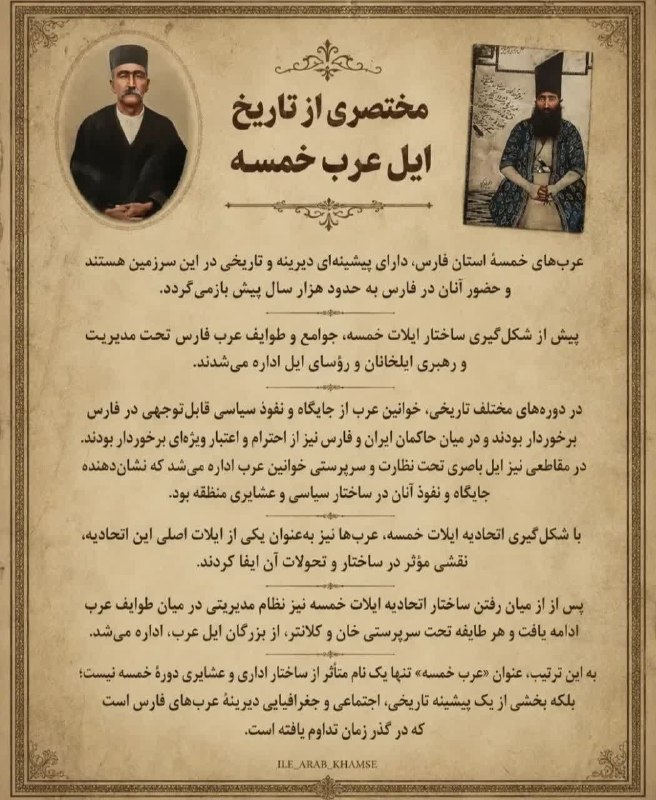 مختصری از تاریخ
ایل عرب خمسه
عرب‌های خمسهٔ استان فارس، دارای پیشینه‌ای دیرینه و تاریخی در این سرزمین هستند
و حضور آنان در فارس به حدود هزار سال پیش بازمی‌گردد.
پیش از شکل‌گیری ساختار ایلات خمسه، جوامع و طوایف عرب فارس تحت مدیریت
و رهبری ایلخانان و رؤسای ایل اداره می‌شدند.
در دوره‌های مختلف تاریخی، خوانین عرب از جایگاه و نفوذ سیاسی قابل‌توجهی در فارس
برخوردار بودند و در میان حاکمان ایران و فارس نیز از احترام و اعتبار ویژه‌ای برخوردار بودند.
در مقاطعی نیز ایل باصری تحت نظارت و سرپرستی خوانین عرب اداره می‌شد که نشان‌دهنده
جایگاه و نفوذ آنان در ساختار سیاسی و عشایری منطقه بود.
با شکل‌گیری اتحادیه ایلات خمسه، عرب‌ها نیز به‌عنوان یکی از ایلات اصلی این اتحادیه،
نقشی مؤثر در ساختار و تحولات آن ایفا کردند.
پس از از میان رفتن ساختار اتحادیه ایلات خمسه نیز نظام مدیریتی در میان طوایف عرب
ادامه یافت و هر طایفه تحت سرپرستی خان و کلانتر، از بزرگان ایل عرب، اداره می‌شد.
به این ترتیب، عنوان «عرب خمسه» تنها یک نام متأثر از ساختار اداری و عشایری دورهٔ خمسه نیست؛
بلکه بخشی از یک پیشینه تاریخی، اجتماعی و جغرافیایی دیرینهٔ عرب‌های فارس است
که در گذر زمان تداوم یافته است.
ILE_ARAB_KHAMSE